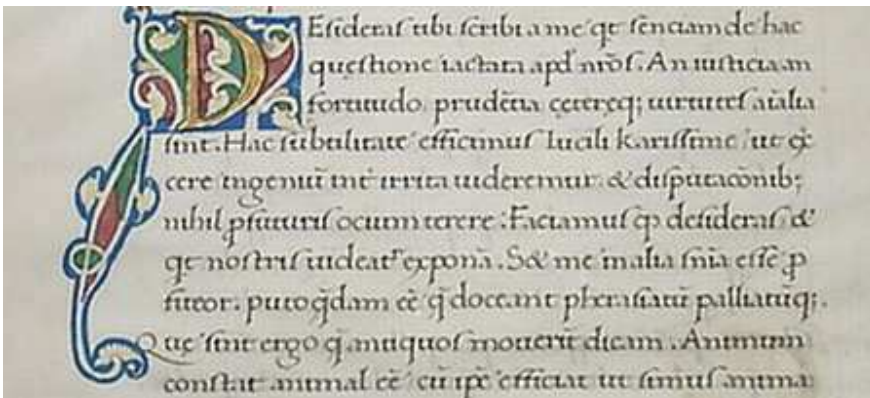 Desideras tibi scribi a me qđ sēnciam de hac
questione iactata apđ nr̄os. An iusticia an
fortitudo prudētia ceteręq; uirtutes aīalia
sint. Hac subtilitate effecimus lucili karissime ut ex
cere ingeniū int̄ irrita uideremur & disputacōnib;
nihil ꝓfuturis ocium terere. Faciamus qđ desideras &
qđ nostris uideat᷑ exponā. Sed me in alia sn̄ia esse ꝓ
fiteor. puto q̄dam eē q̄ doceant pherasiatū palliatūq;.
Que sint ergo q̄ antiquos mouerūt dicam. Animum
constat animal eē cū ipē efficiat ut simus anima